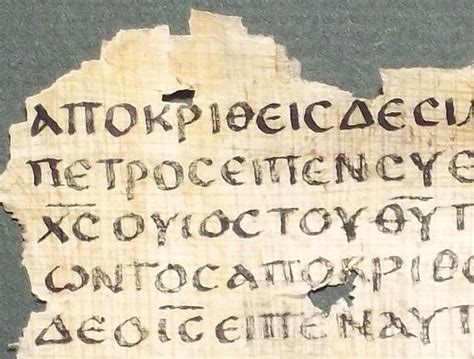 ΑΠΟΚΡΙΘΕΙϹΔΕϹΙ
ΠΕΤΡΟϹΕΙΠΕΝϹΥΕ
Χ̅Ϲ̅ΟΥΙΟϹΤΟΥΘ̅Υ̅Τ
ΩΝΤΟϹΑΠΟΚΡΙΘ
ΔΕΟΙ̅Ϲ̅ΕΙΠΕΝΑΥΤ